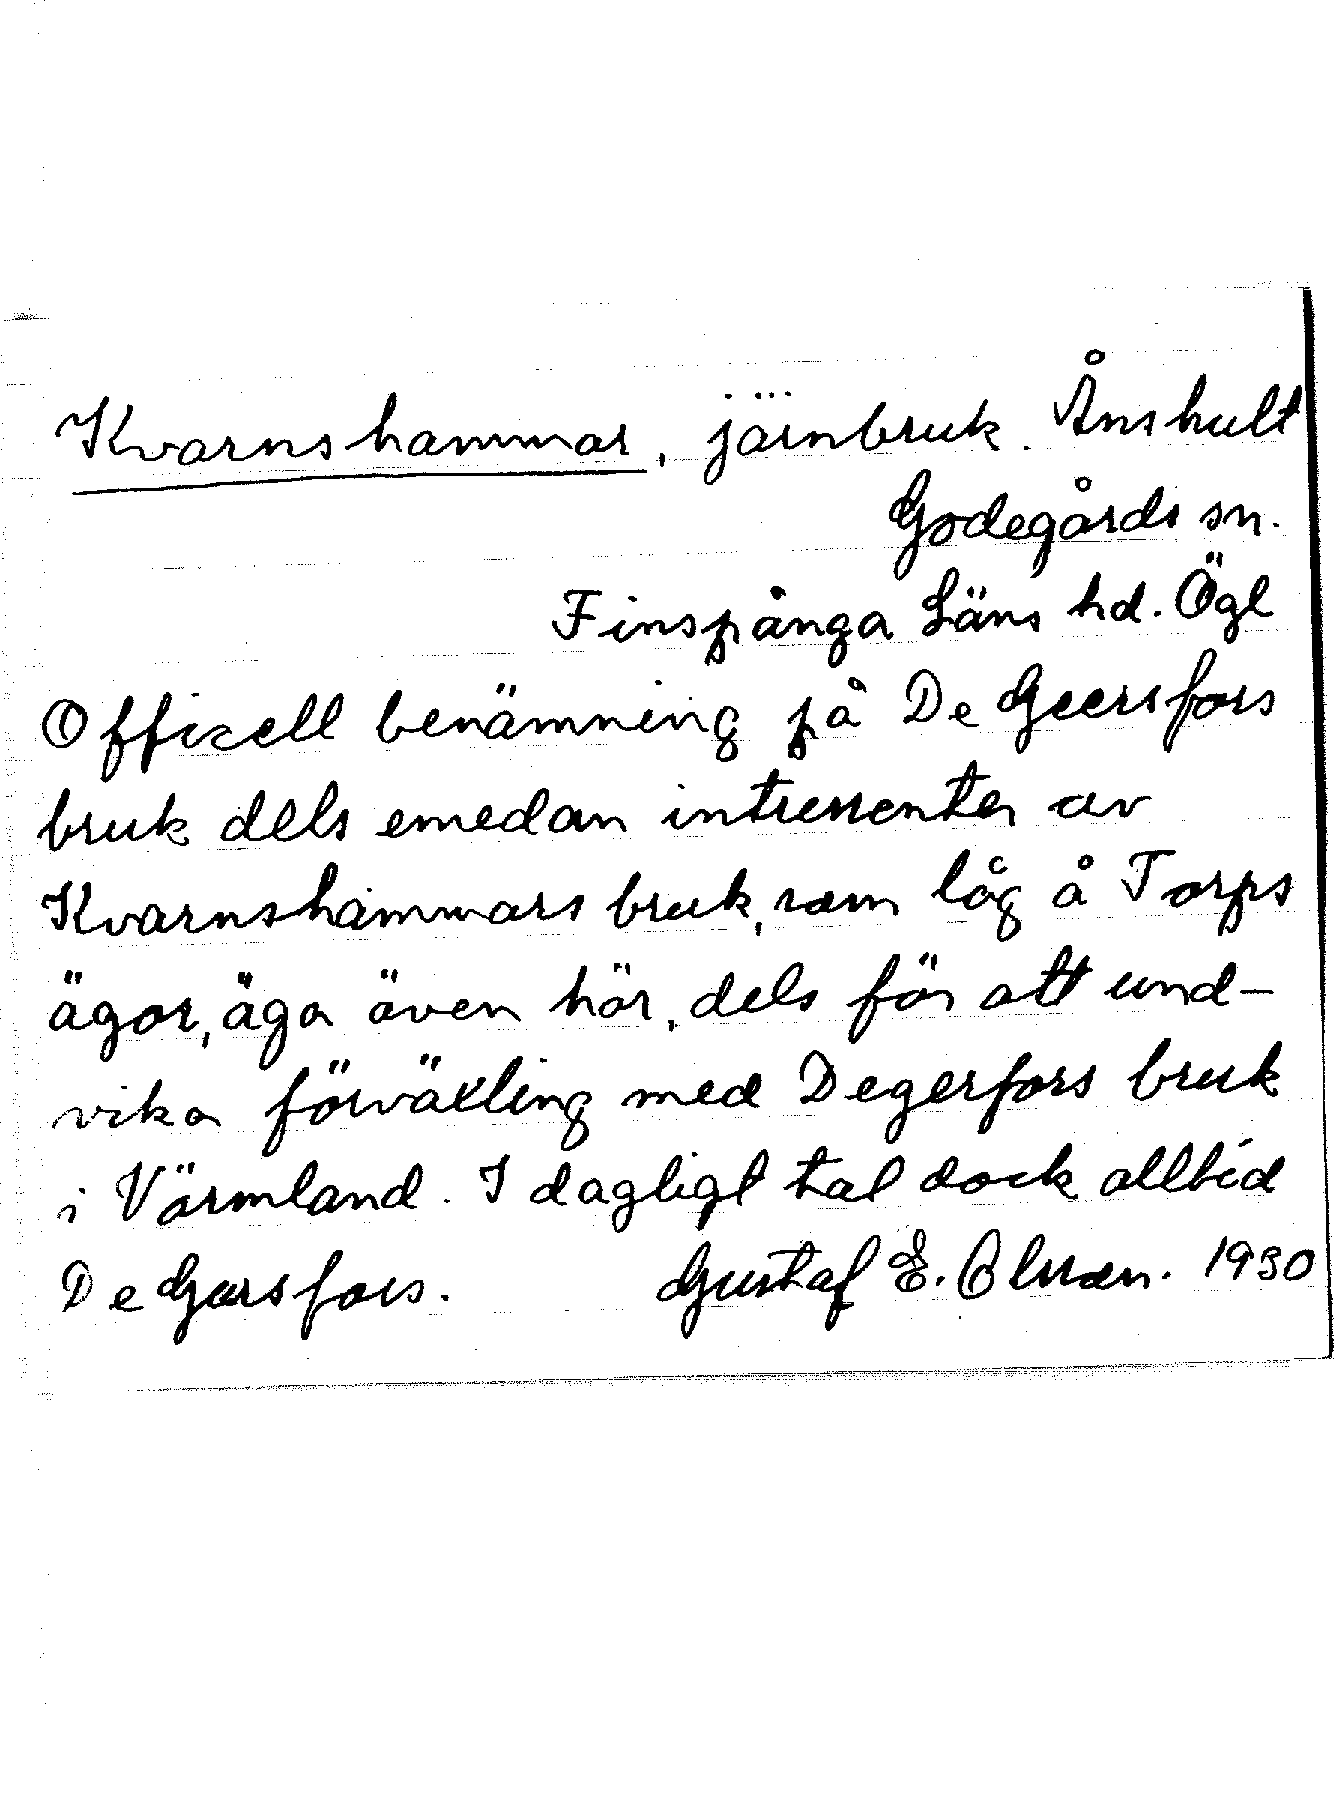 Kvarnshammar, järnbruk. Ånshult
Godegårds sn.
Finspånga Läns hd. Ögl
Officell benämning på De Geersfors
bruk dels emedan intressenter av
Kvarnshammars bruk, som låg å Torps
ägor, äga även här, dels för att und-
vika förväxling med Degerfors bruk
i Värmland. I dagligt tal dock alltid
De Gersfors. Gustaf E. Olsson. 1930